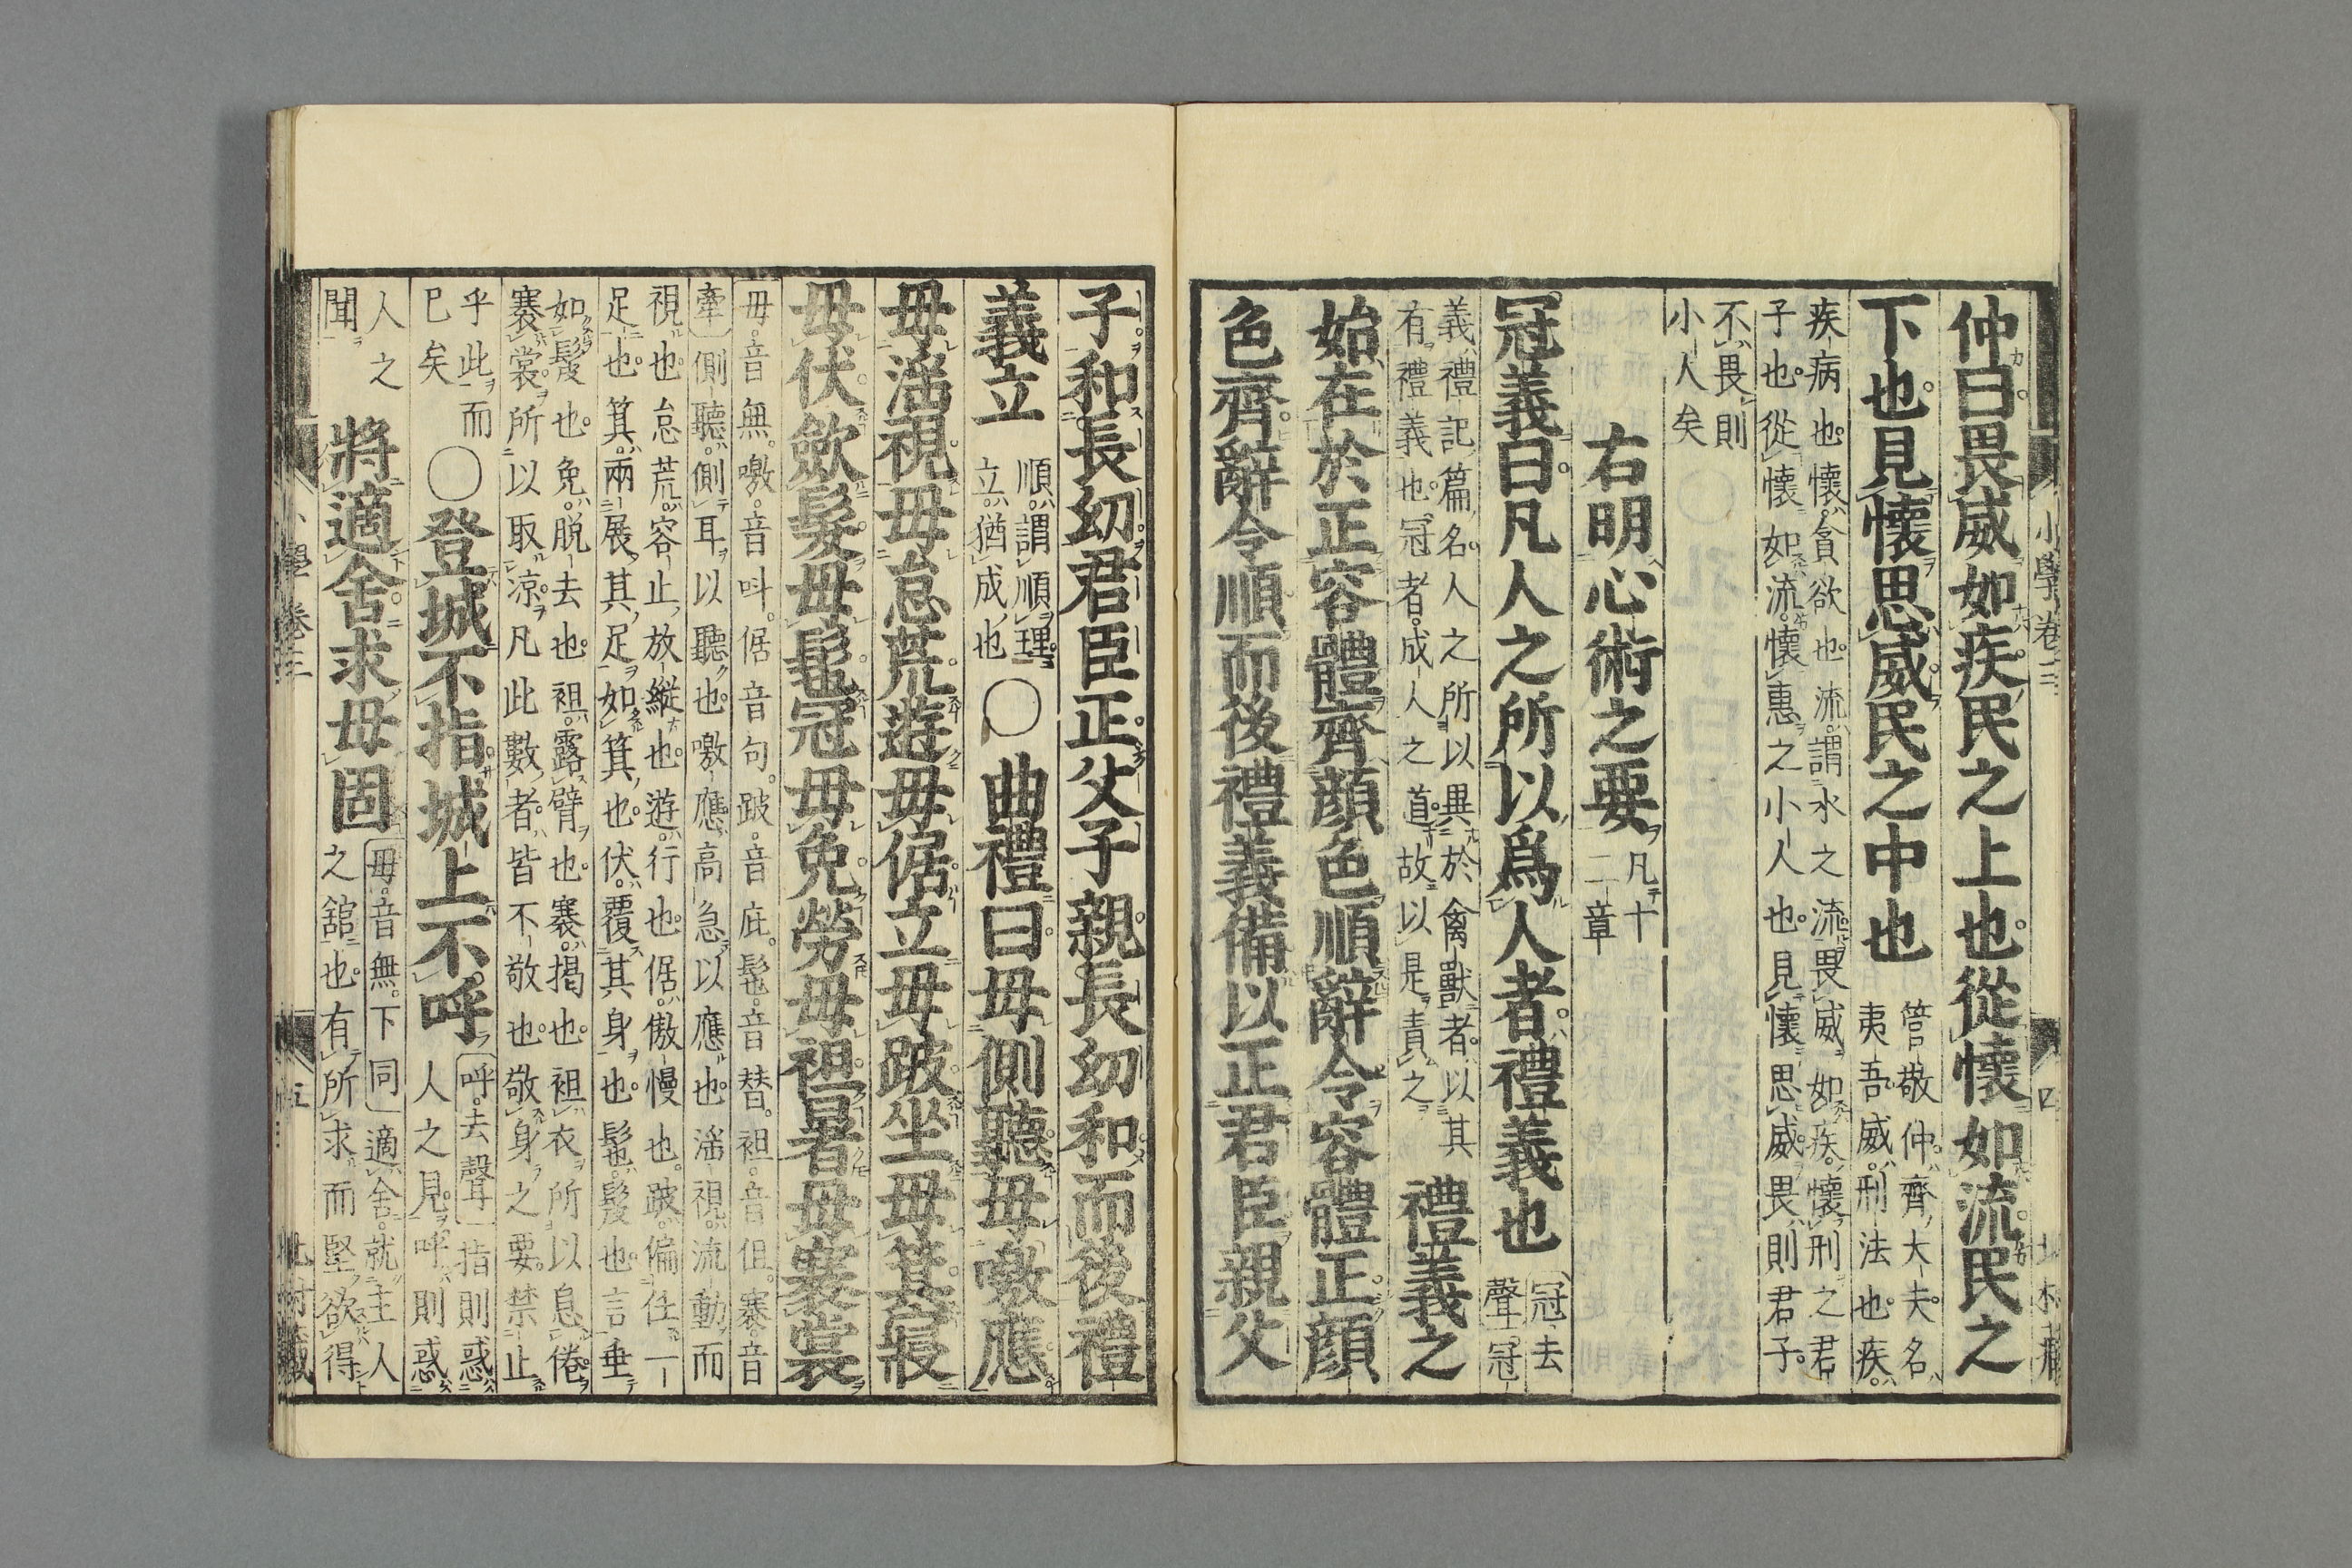 仲曰畏威如疾民之上也從懷如流民之
下也見懷思威民之中也
管敬仲齊大夫名
夷吾威刑法也疾
疾病也懷貪欲也流謂水之流畏威如疾懷刑之君
子也從懷如流懷惠之小人也見懷思威畏則君子
不畏則
小人矣
右明心術之要
凡十
二章
冠義曰凡人之所以爲人者禮義也
冠去
聲冠
義禮記篇名人之所以異於禽獸者以其
有禮義也冠者成人之道故以是責之
禮義之
始在於正容體齊顔色順辭令容體正顔
色齊辭令順而後禮義備以正君臣親父
子和長幼君臣正父子親長幼和而後禮
義立
順謂順理
立猶成也
〇曲禮曰毋側聽毋噭應
毋淫視毋怠荒遊毋倨立毋跛坐毋箕寢
毋伏斂髮毋髢冠毋免勞毋袒暑毋褰裳
毋音無噭音呌倨音句跛音庇髢音替袒音但褰音
牽側聽側耳以聽也噭應高急以應也淫視流動而
視也怠荒容止放縱也遊行也倨傲慢也跛偏任一
足也箕兩展其足如箕也伏覆其身也髢髲也言垂
如髲也免脱去也袒露臂也褰揭也袒衣所以息倦
褰裳所以取凉凡此數者皆不敬也敬身之要禁止
乎此而
已矣
〇登城不指城上不呼
呼去聲指則惑
人之見呼則惑
人之
聞
將適舍求毋固
毋音無下同適舍就主人
之舘也有所求而堅欲得
小學卷三
四
小學卷三
五